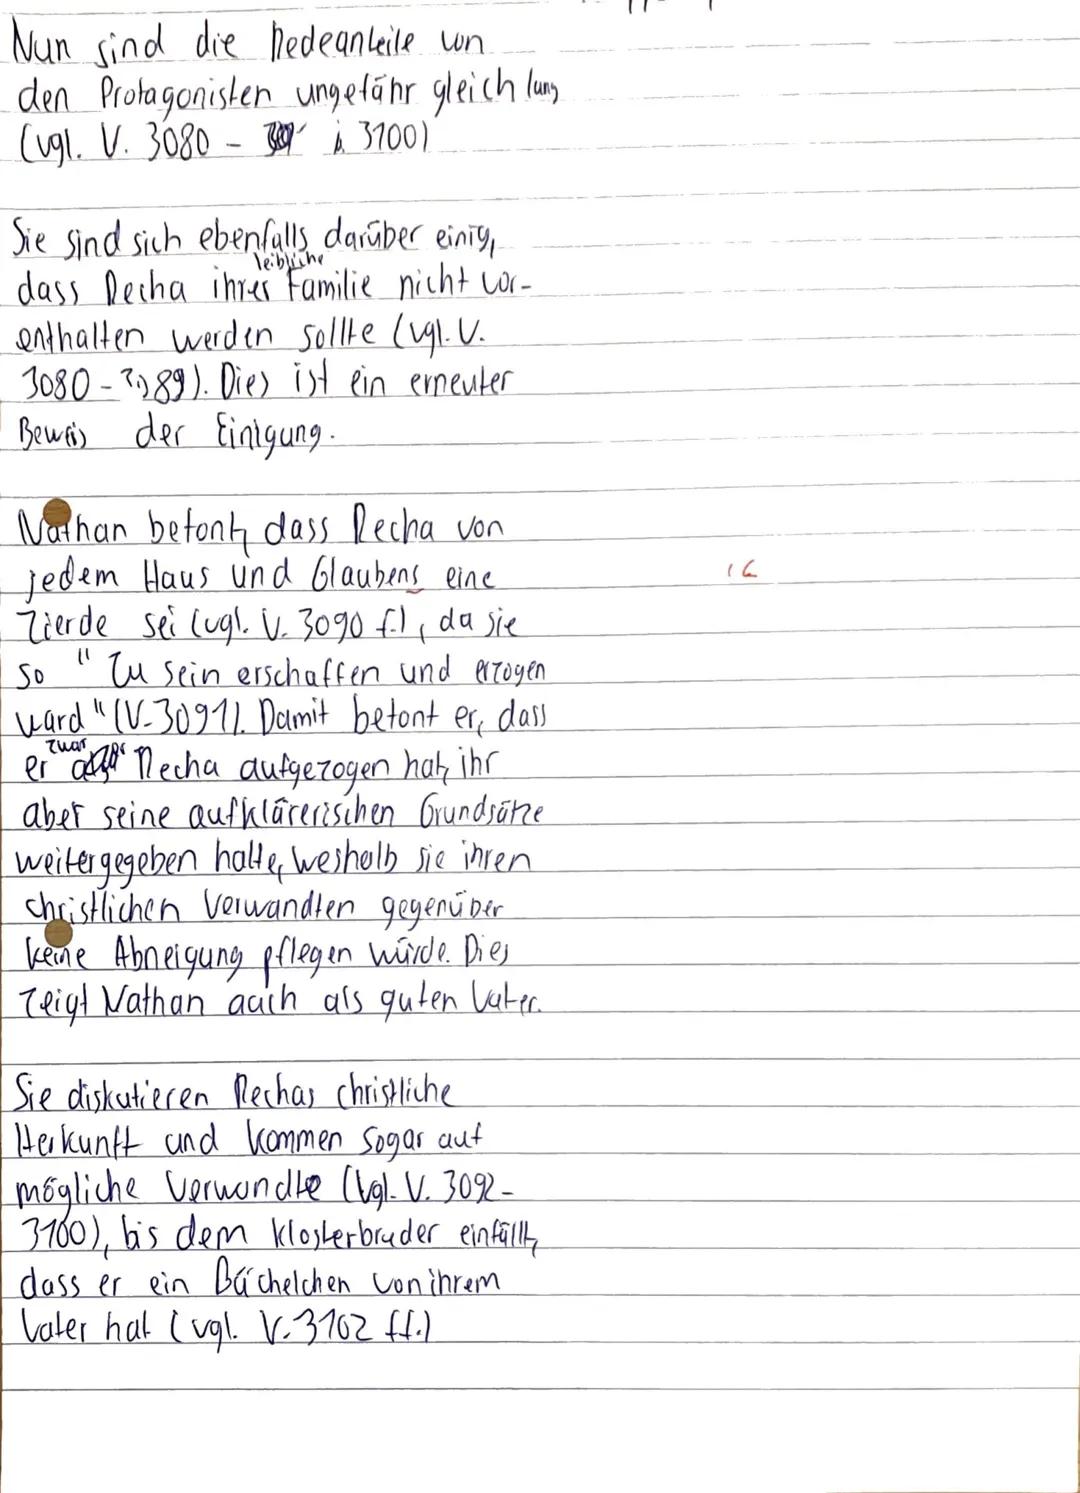 Nun sind die Redeanteile von
den Protagonisten ungefähr gleich lang
(vgl. V. 3080 - 3100)
Sie sind sich ebenfalls darüber einig,
leibliche
dass Recha ihrer Familie nicht vor-
enthalten werden sollte (vgl. V.
3080 - 3089). Dies ist ein erneuter
Beweis der Einigung.
Nathan betont, dass Recha von
jedem Haus und Glaubens eine
Zierde sei (vgl. V. 3090 f.), da sie
so "zu sein erschaffen und erzogen
ward" (V. 3091). Damit betont er, dass
zwar
er Recha aufgezogen hat, ihr
aber seine aufklärerischen Grundsätze
weitergegeben hatte, weshalb sie ihren
christlichen Verwandten gegenüber
keine Abneigung pflegen würde. Dies
zeigt Nathan auch als guten Vater.
Sie diskutieren Rechas christliche
Herkunft und kommen sogar auf
mögliche Verwandte (vgl. V. 3092 -
3100), bis dem Klosterbruder einfällt,
dass er ein Büchelchen von ihrem
Vater hat (vgl. V. 3102 ff.)